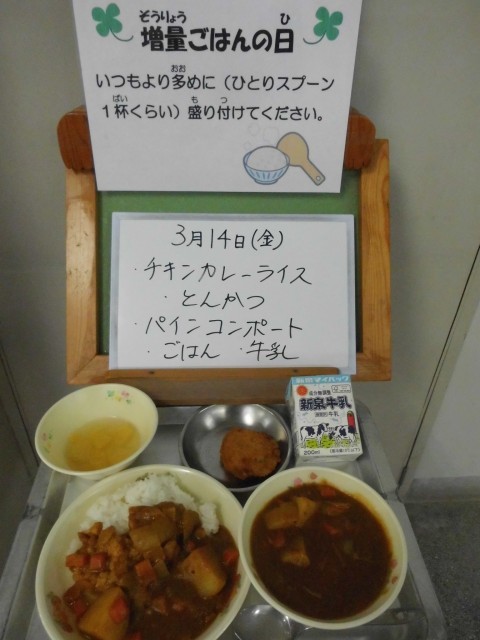 増量ごはんの日
いつもより多めに（ひとりスプーン
１杯くらい）盛り付けてください。
3月14日(金)
・チキンカレーライス
・とんかつ
・パインコンポート
・ごはん ・牛乳
新泉牛乳
200ml